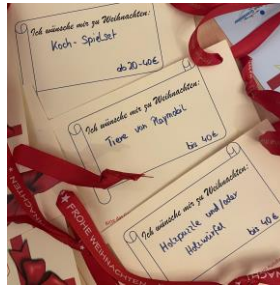 Ich wünsche mir zu Weihnachten:
Koch-Spielset
ab 20-40€
Ich wünsche mir zu Weihnachten:
Tiere von Playmobil
bis 40€
Ich wünsche mir zu Weihnachten:
Holzpuzzle und/oder
Holzwürfel
bis 40€
FROHE WEIHNACHTEN